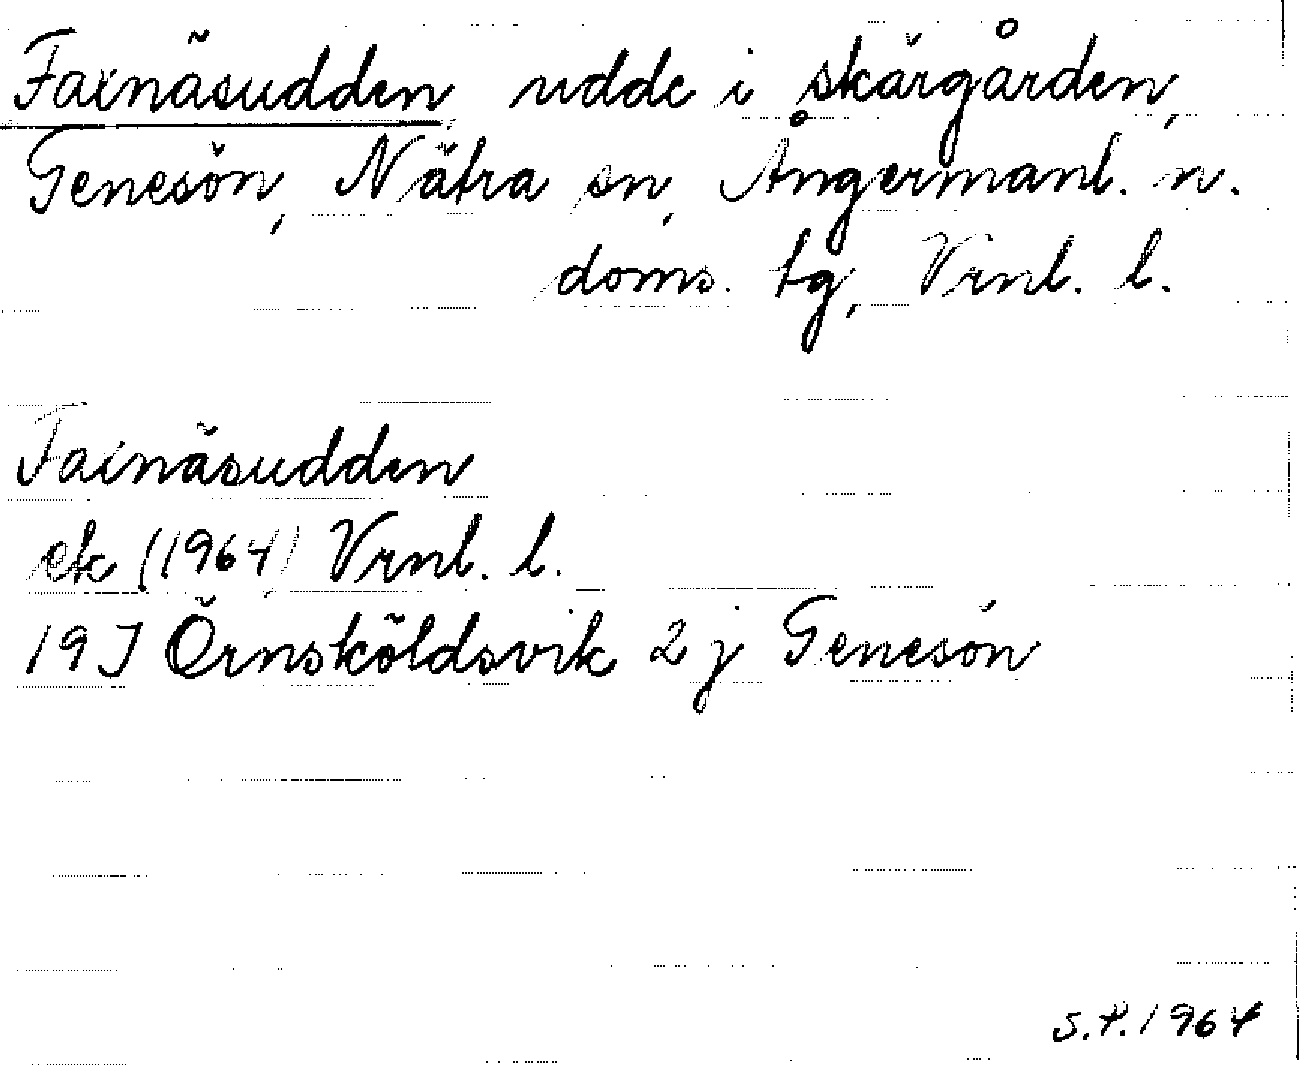 Fainäsudden udde i skärgården,
Genesön, Nätra sn, Ångermanl. n.
doms. tg, Vrnl. l.
Fainäsudden
ek (1964) Vrnl. l.
19J Örnsköldsvik 2 j Genesön
S.P. 1964